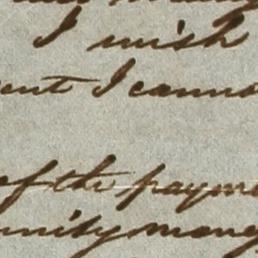 I wish
ent I canno
of the payme
unity money